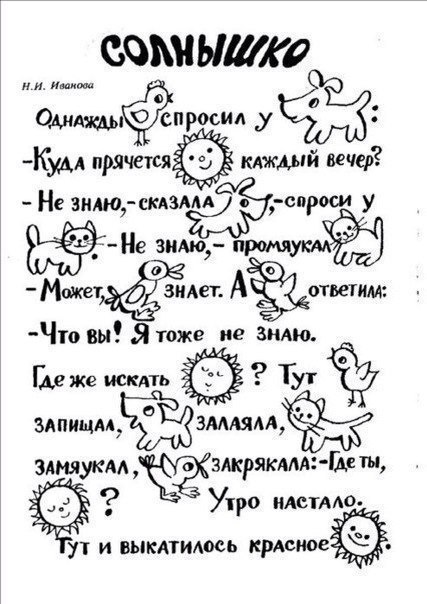 СОЛНЫШКО
Н.И. Иванова
Однажды спросил у :
-Куда прячется каждый вечер?
- Не знаю,- сказала ,-спроси у
.-Не знаю,- промяукал .
-Может, знает. А ответила:
-Что вы! Я тоже не знаю.
Где же искать ? Тут
запищал, залаяла,
замяукал, закрякала:-Где ты,
? Утро настало.
Тут и выкатилось красное .